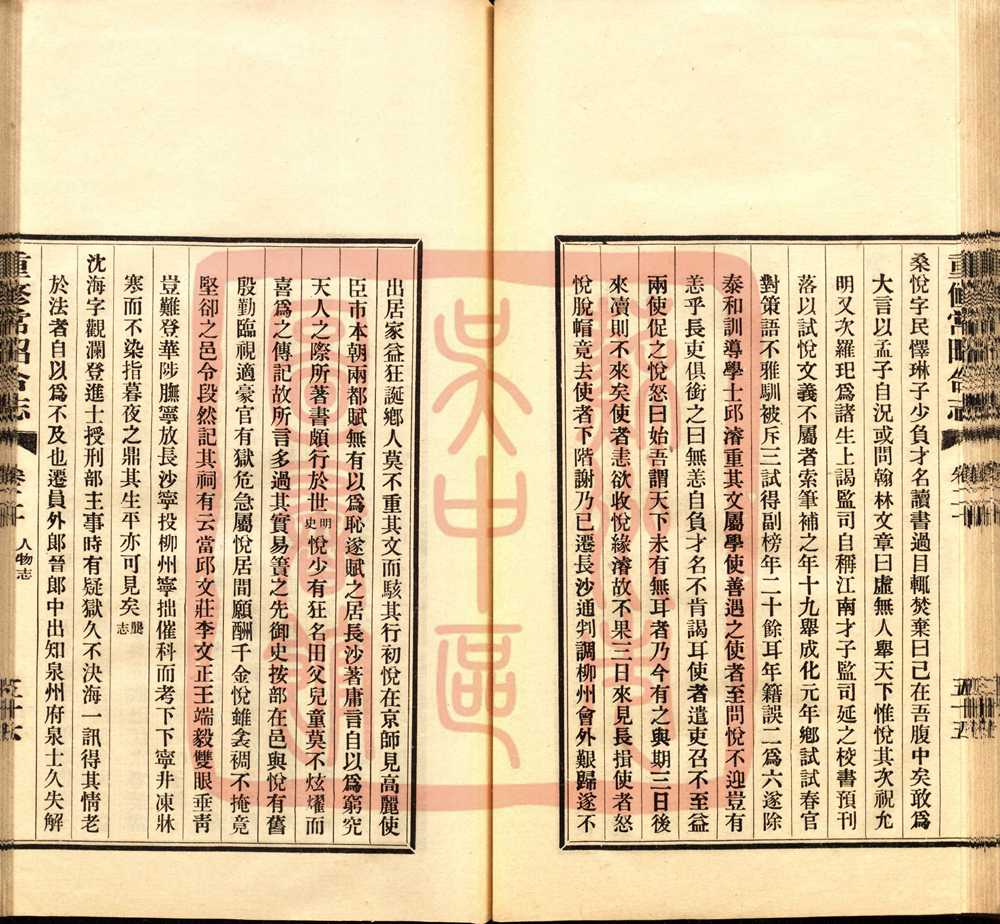 重修常昭合志
卷二十
五十五
桑悅字民懌琳子少負才名讀書過目輒焚棄曰已在吾腹中矣敢爲
大言以孟子自況或問翰林文章曰虛無人舉天下惟悅其次祝允
明又次羅玘爲諸生上謁監司自稱江南才子監司延之校書預刊
落以試悅文義不屬者索筆補之年十九舉成化元年鄉試試春官
對策語不雅馴被斥三試得副榜年二十餘耳年籍誤二爲六遂除
泰和訓導學士邱濬重其文屬學使善遇之使者至問悅不迎豈有
恙乎長吏俱銜之曰無恙自負才名不肯謁耳使者遣吏召不至益
兩使促之悅怒曰始吾謂天下未有無耳者乃今有之與期三日後
來瀆則不來矣使者恚欲收悅緣濬故不果三日來見長揖使者怒
悅脫帽竟去使者下階謝乃已遷長沙通判調柳州會外艱歸遂不
出居家益狂誕鄉人莫不重其文而駭其行初悅在京師見高麗使
臣市本朝兩都賦無有以爲恥遂賦之居長沙著庸言自以爲窮究
天人之際所著書頗行於世明史悅少有狂名田父兒童莫不炫燿而
喜爲之傳記故所言多過其實易簀之先御史按部在邑與悅有舊
殷勤臨視適豪官有獄危急屬悅居間願酬千金悅雖衾裯不掩竟
堅卻之邑令段然記其祠有云當邱文莊李文正王端毅雙眼垂靑
豈難登華陟膴寧放長沙寧投柳州寧拙催科而考下下寧井凍牀
寒而不染指暮夜之鼎其生平亦可見矣龔志
沈海字觀瀾登進士授刑部主事時有疑獄久不決海一訊得其情老
於法者自以爲不及也遷員外郎晉郎中出知泉州府泉士久失解
重修常昭合志
卷二十
人物志
五十六
吳中區